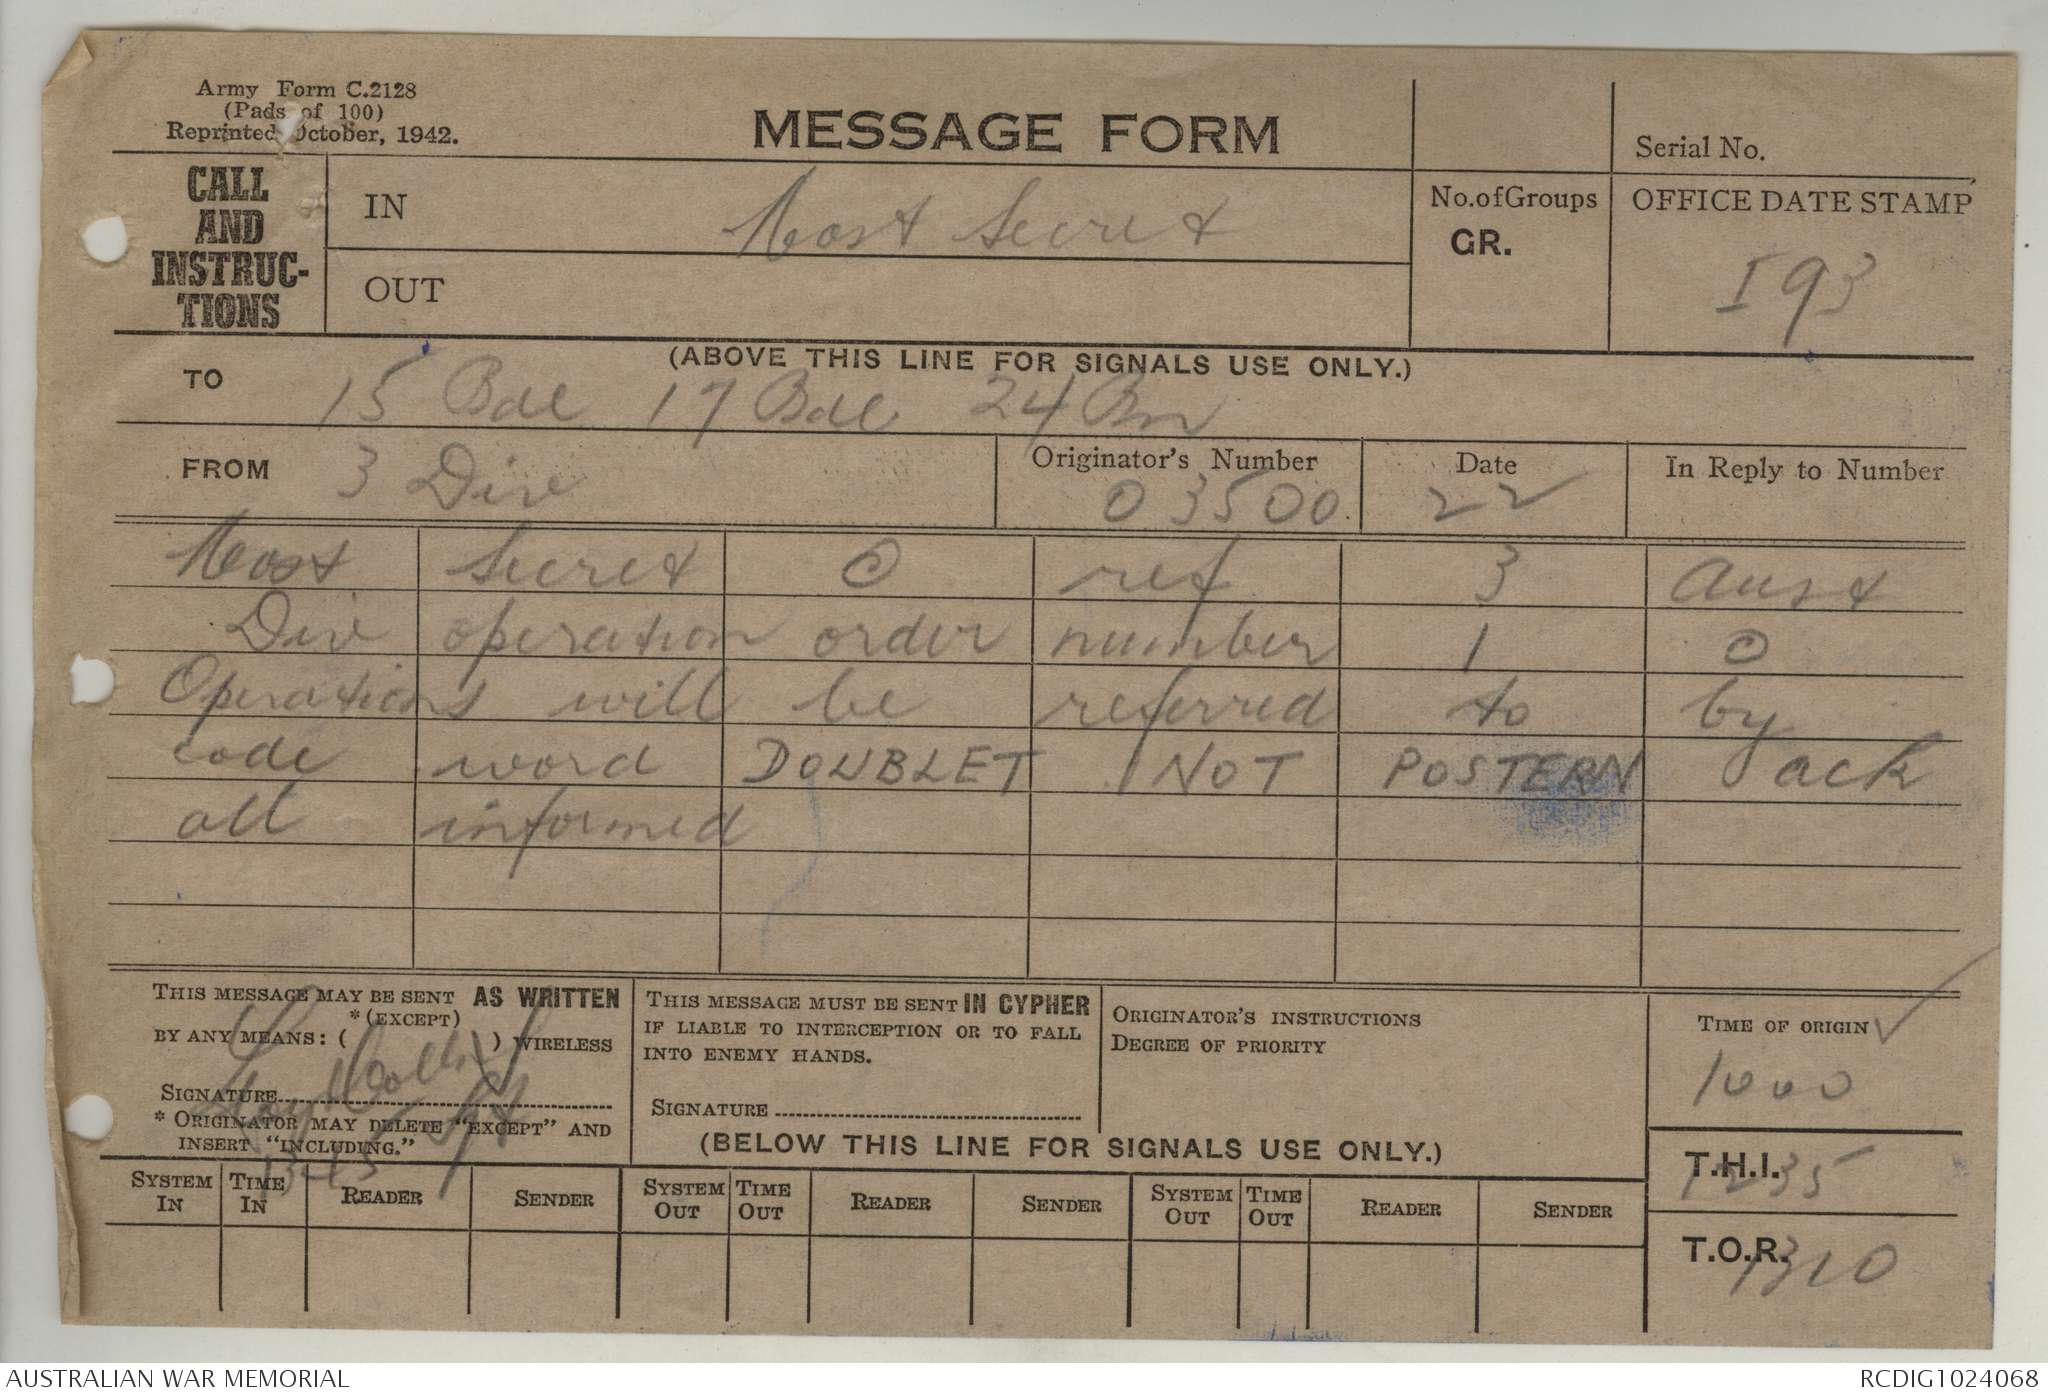 Army Form C.2128
(Pads of 100)
Reprinted October, 1942.
MESSAGE FORM
Serial No.
CALL
AND
INSTRUC-
TIONS
IN
Most Secret
OUT
No. of Groups
GR.
OFFICE DATE STAMP
I 93
(ABOVE THIS LINE FOR SIGNALS USE ONLY.)
TO 15 Bde 17 Bde 24 Bn
FROM 3 Div
Originator's Number
O 3500
Date
22
In Reply to Number
Most Secret O ref 3 Aust
Div operation order number 1 O
Operations will be referred to by
code word DOUBLET NOT POSTERN ack
all informed
THIS MESSAGE MAY BE SENT AS WRITTEN
*(EXCEPT)
BY ANY MEANS: ( ) WIRELESS
SIGNATURE
* ORIGINATOR MAY DELETE "EXCEPT" AND
INSERT "INCLUDING."
THIS MESSAGE MUST BE SENT IN CYPHER
IF LIABLE TO INTERCEPTION OR TO FALL
INTO ENEMY HANDS.
SIGNATURE
ORIGINATOR'S INSTRUCTIONS
DEGREE OF PRIORITY
TIME OF ORIGIN
1000
(BELOW THIS LINE FOR SIGNALS USE ONLY.)
T.H.I. 1235
T.O.R. 1310
SYSTEM IN TIME IN READER SENDER SYSTEM OUT TIME OUT READER SENDER SYSTEM OUT TIME OUT READER SENDER
AUSTRALIAN WAR MEMORIAL
RCDIG1024068